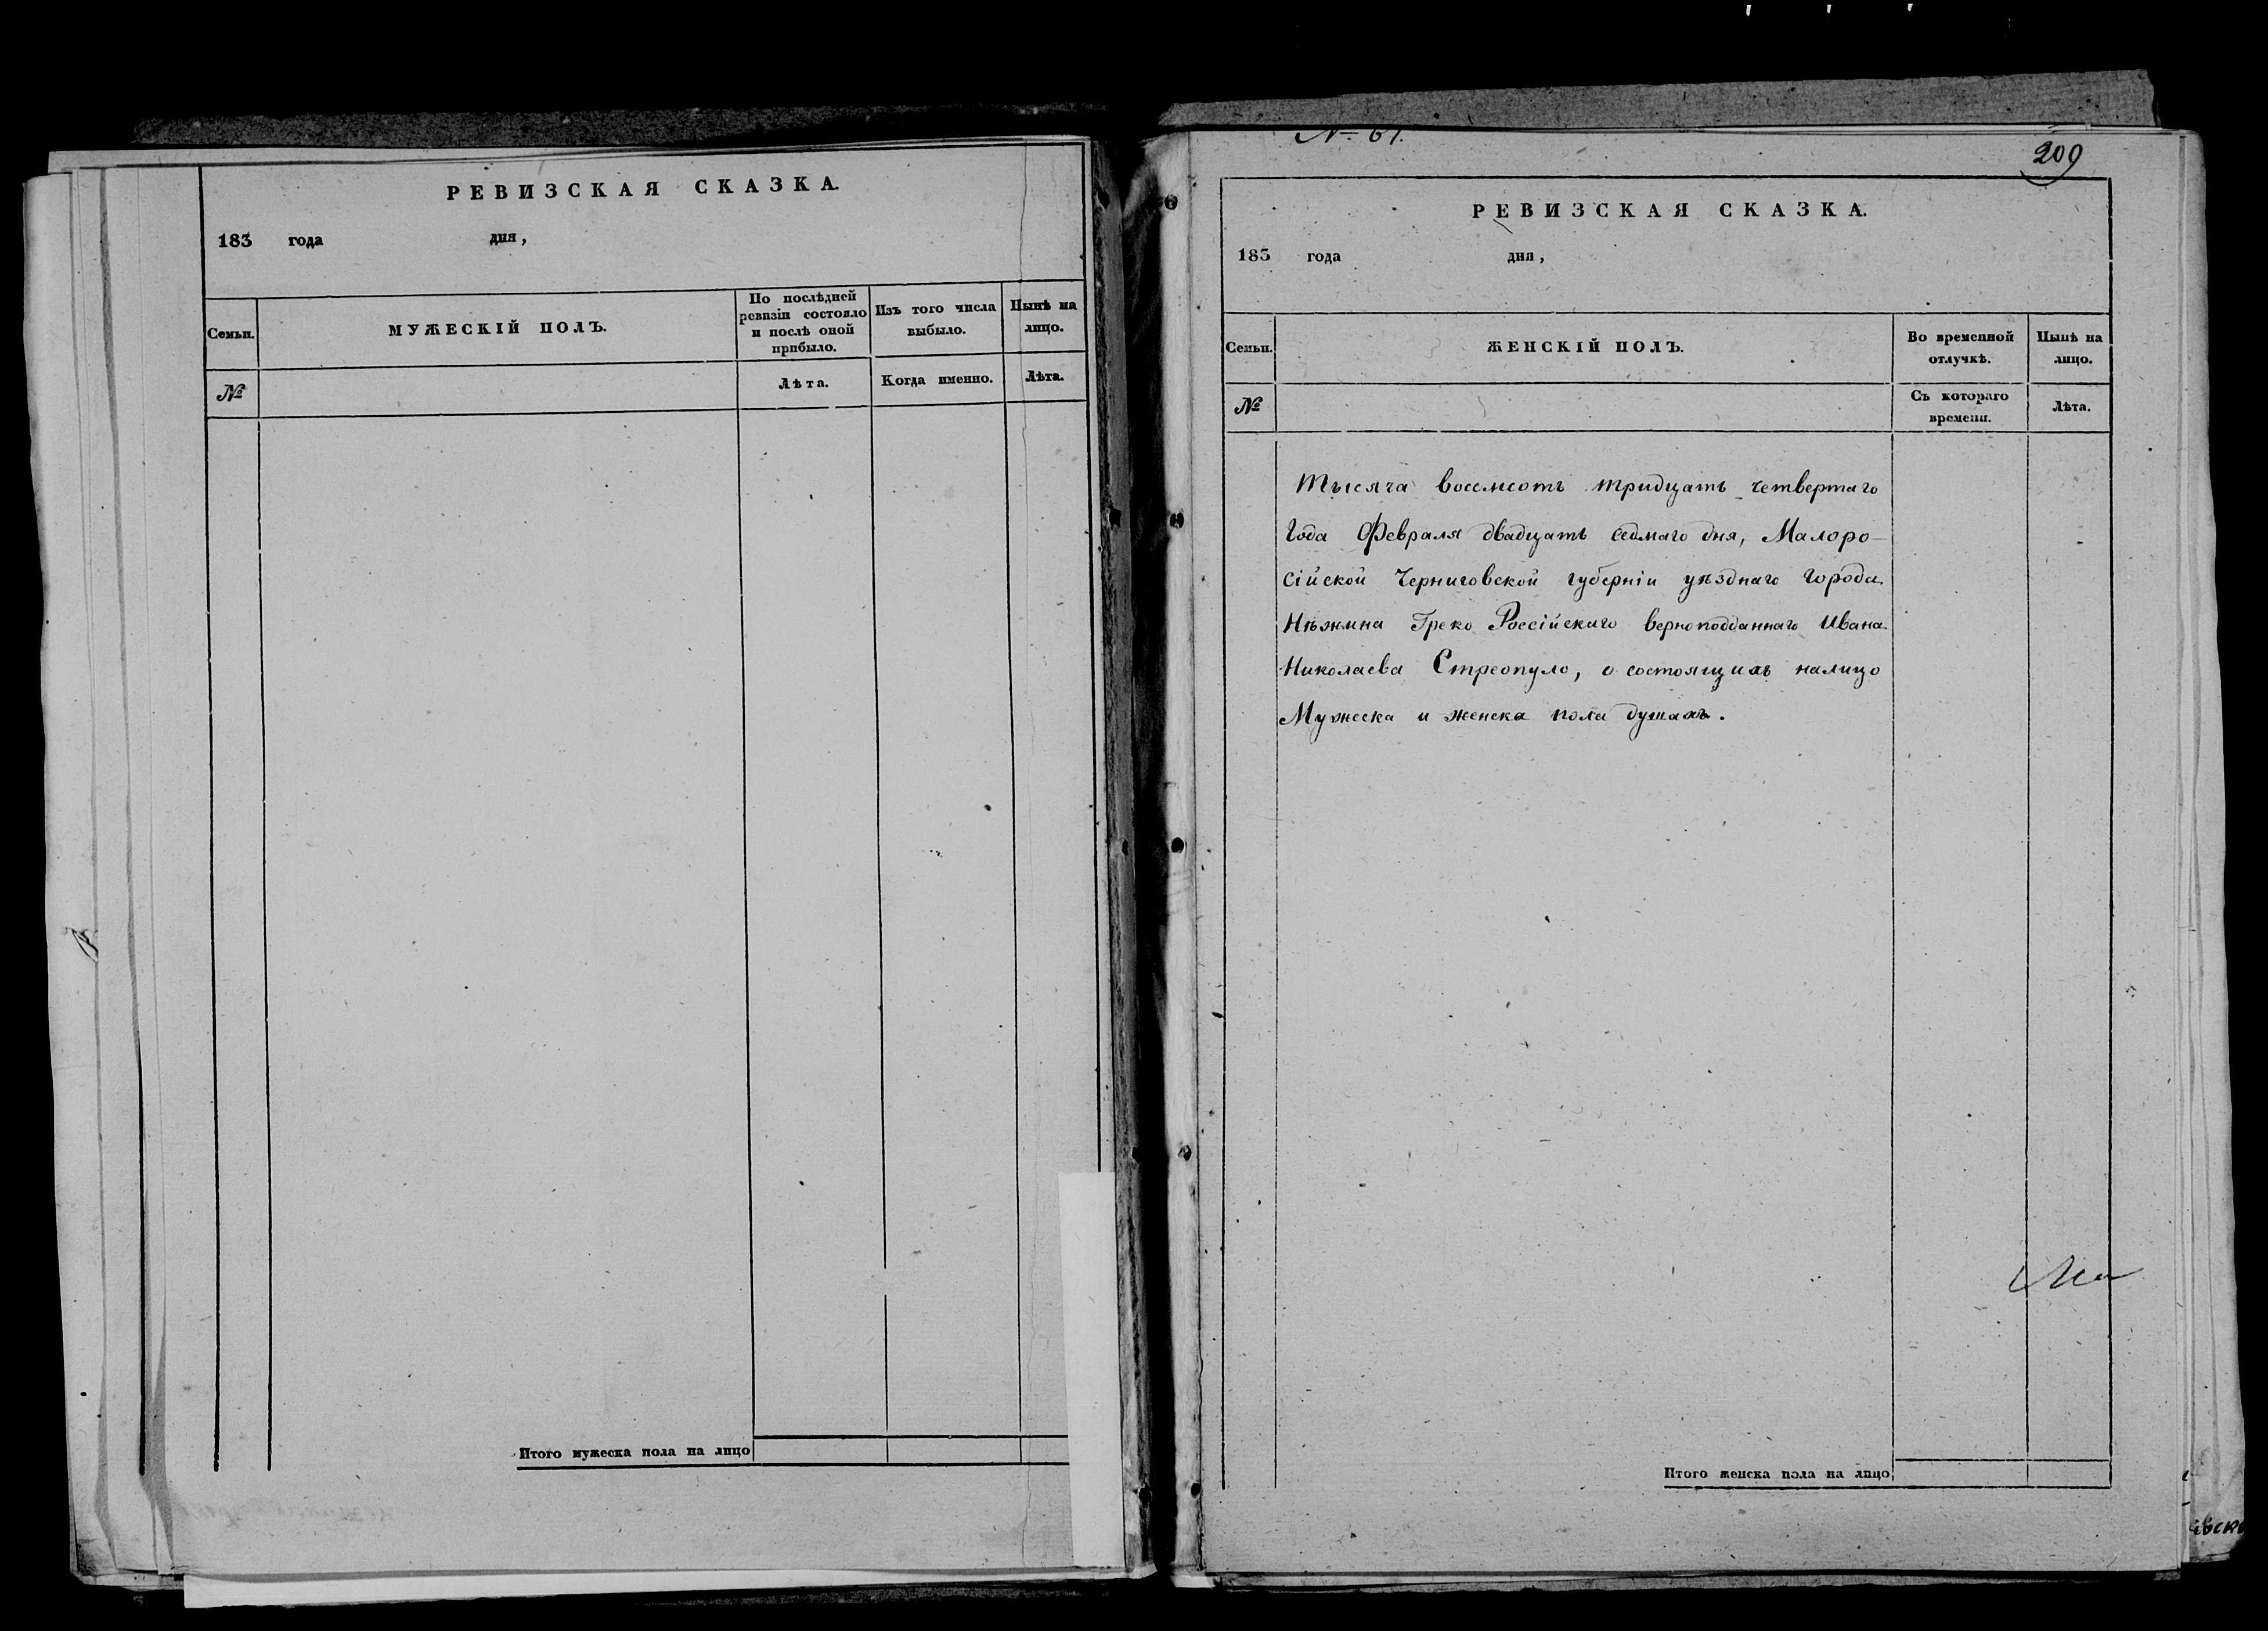 РЕВИЗСКАЯ СКАЗКА.
183 года дня,
Семьи.
МУЖЕСКІЙ ПОЛЪ.
По послѣдней
ревизіи состояло
и послѣ оной
прибыло.
Изъ того числа
выбыло.
Нынѣ на
лицо.
№
Лѣта.
Когда именно.
Лѣта.
Итого мужеска пола на лицо
№ 61.
209
РЕВИЗСКАЯ СКАЗКА.
183 года дня,
Семьи.
ЖЕНСКІЙ ПОЛЪ.
Во временной
отлучкѣ.
Нынѣ на
лицо.
№
Съ котораго
времени.
Лѣта.
Тысяча восемсотъ тридцать четвертаго
Года Февраля двадцать седмаго дня, Малоро-
сійской Черниговской губерніи уѣзднаго города
Нѣжина Греко Россійскаго вѣрноподданнаго Ивана
Николаева Стреопуло, о состоящихъ налицо
Мужеска и женска пола душахъ.
Итого женска пола на лицо